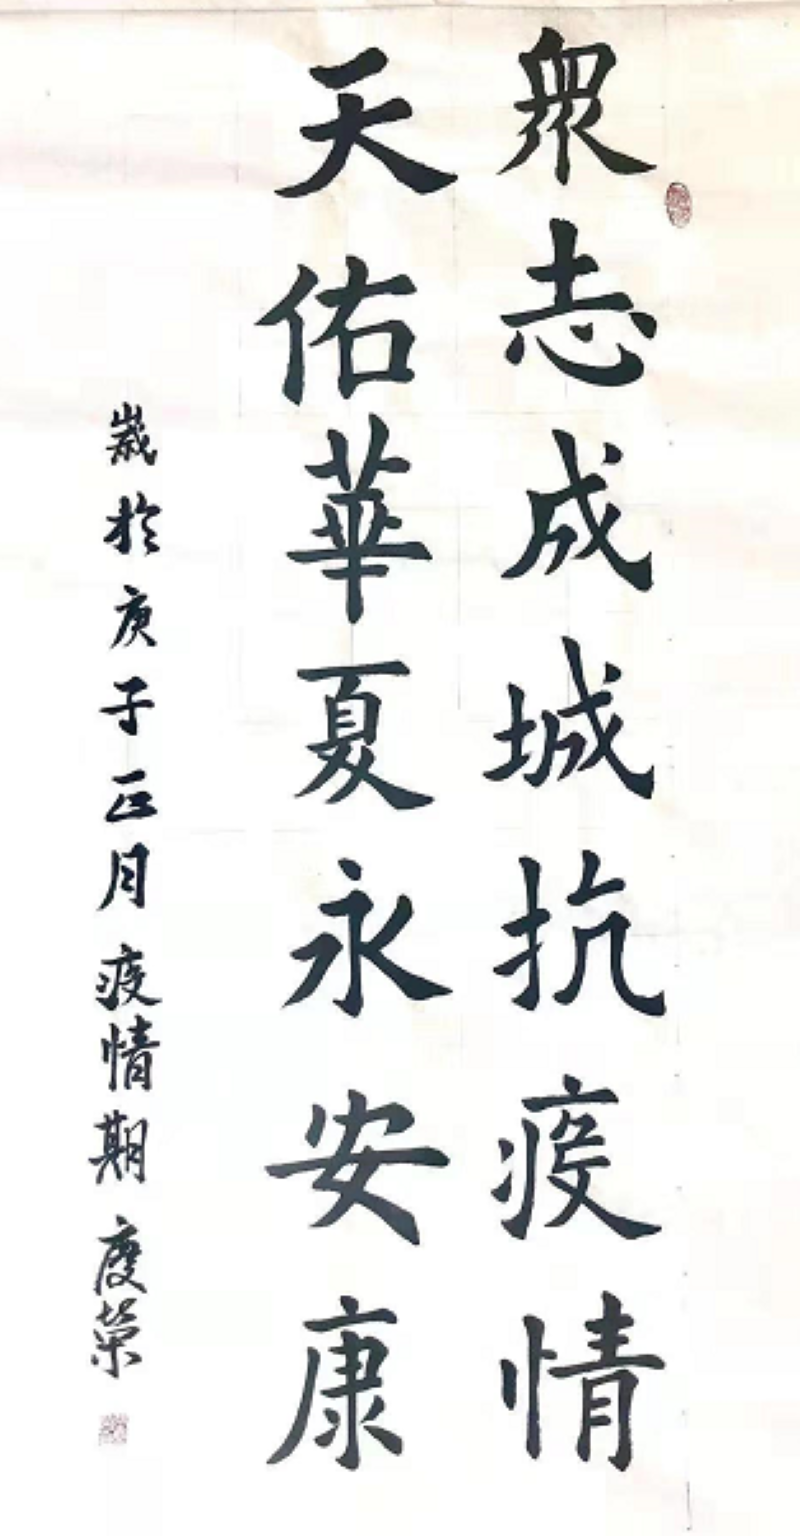 衆志成城抗疫情
天佑華夏永安康
嵗於庚子正月疫情期 慶榮